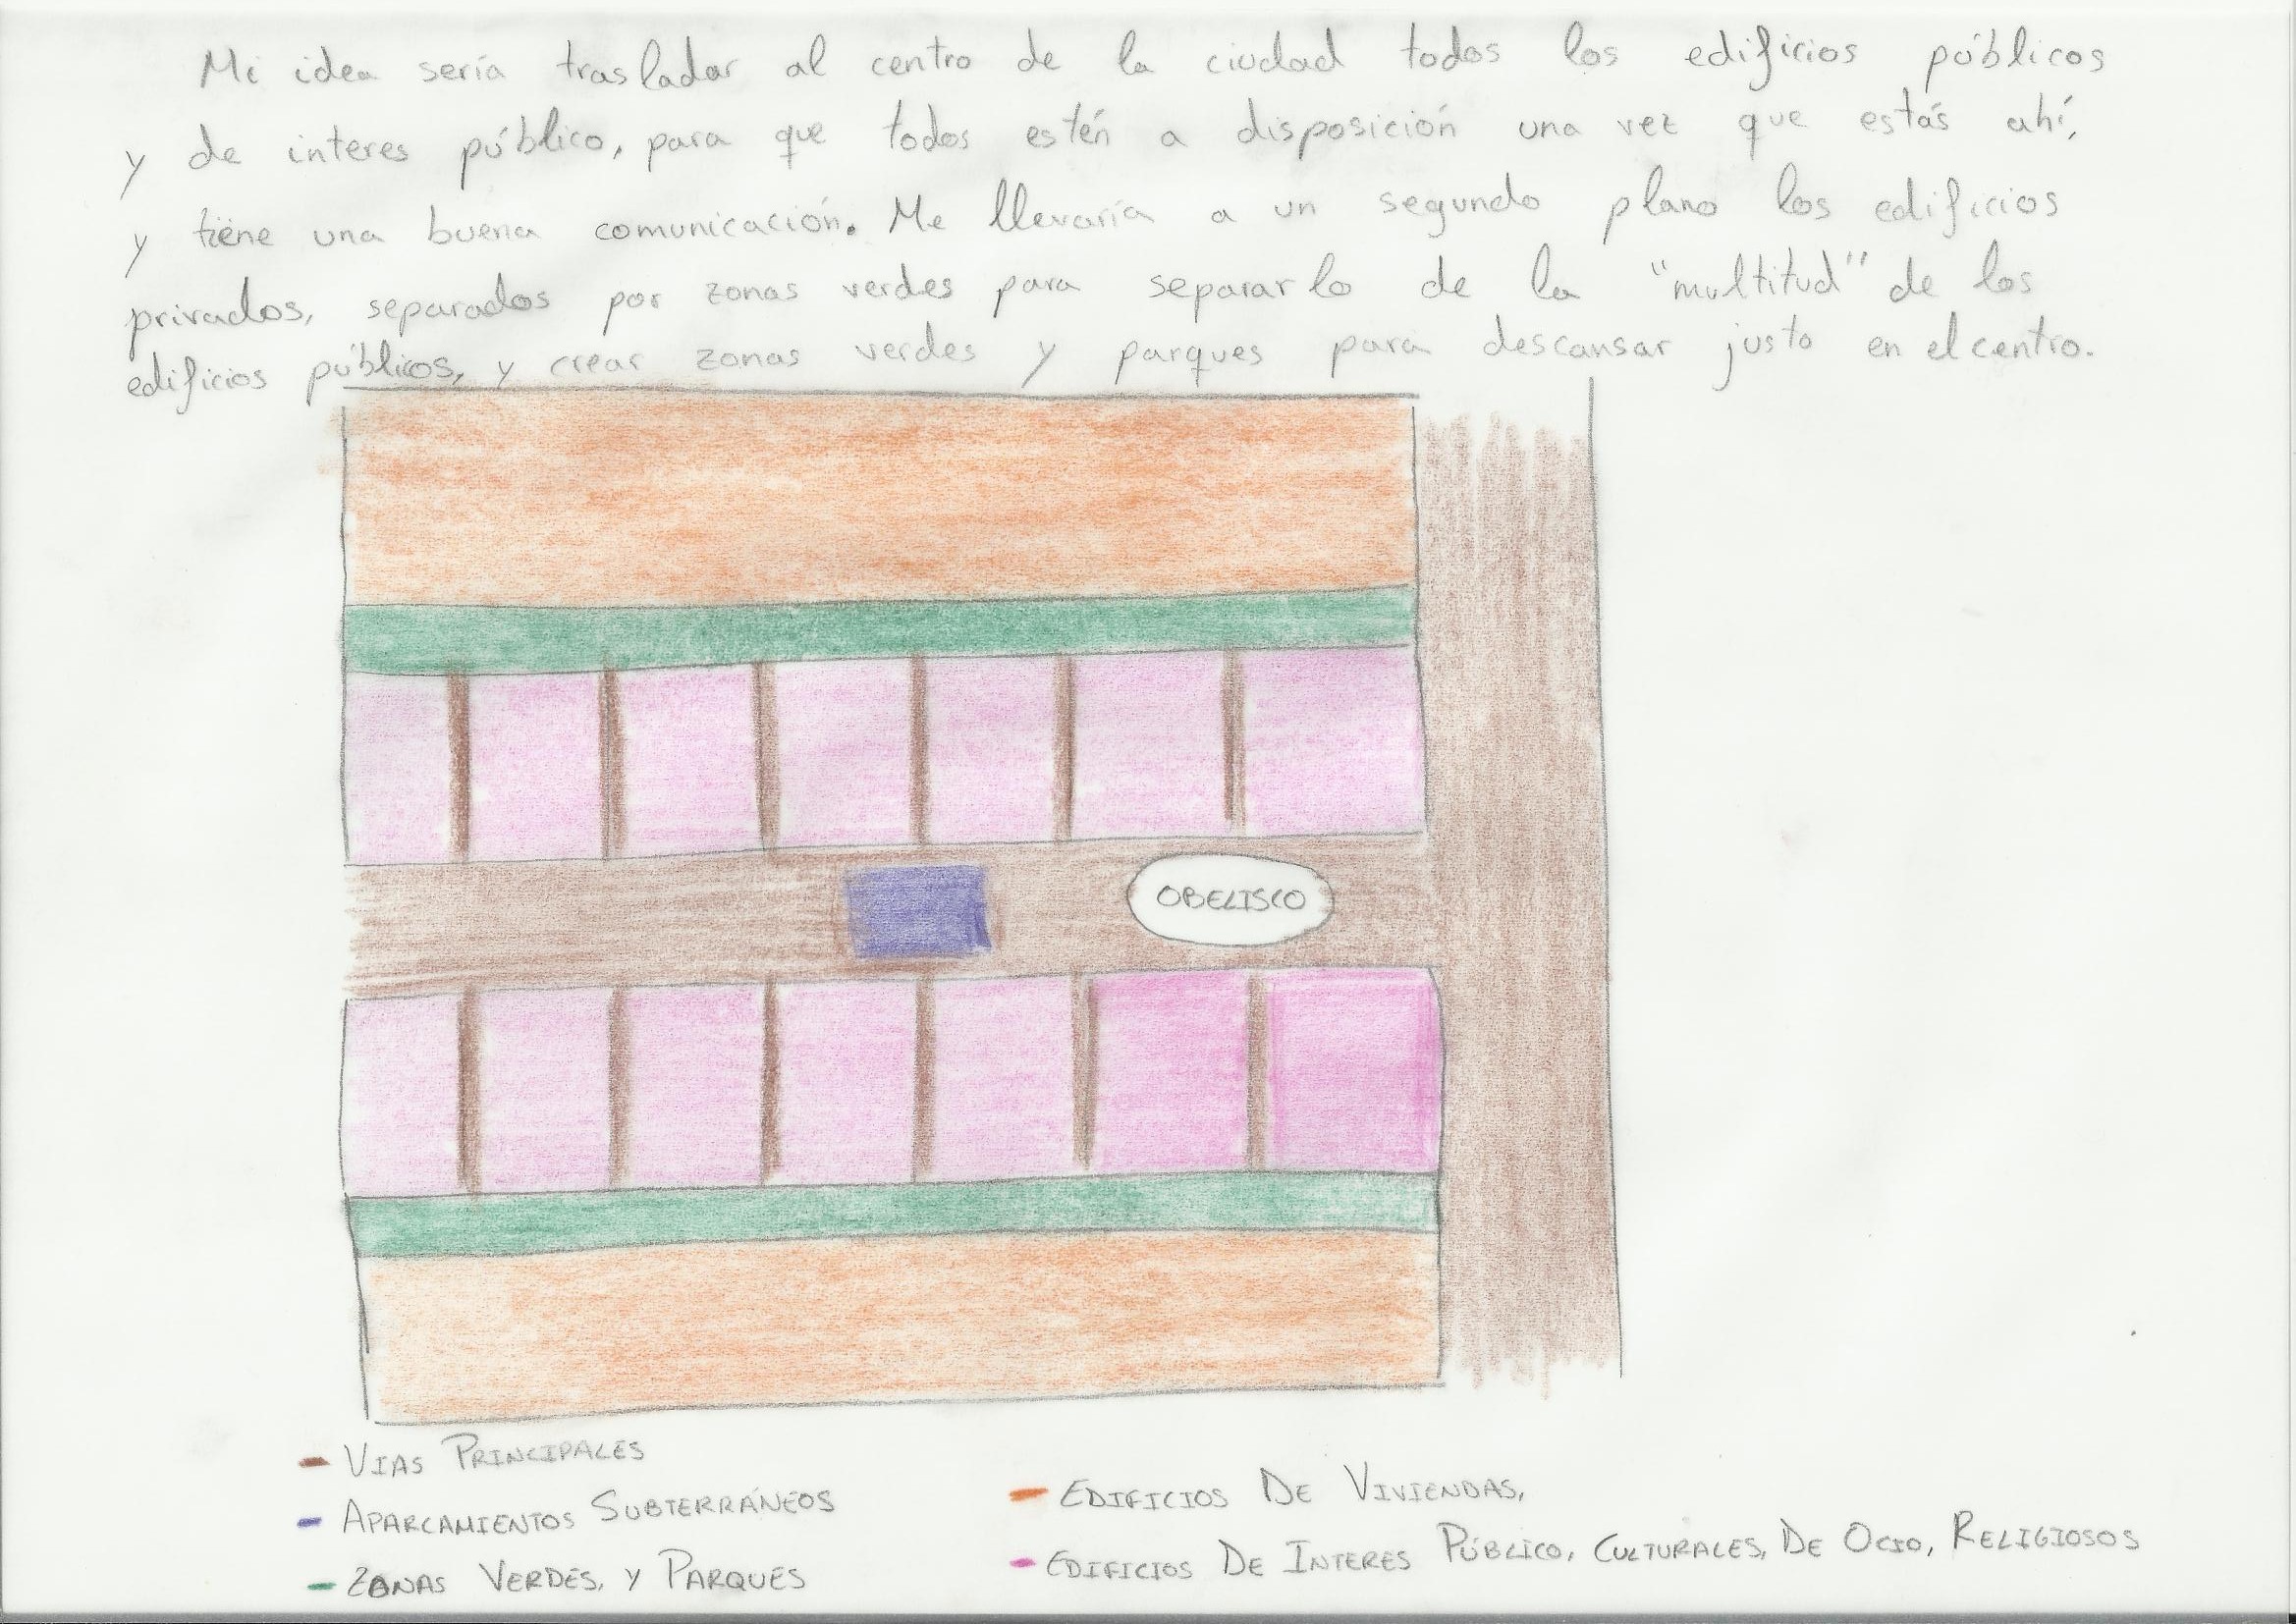 Mi idea sería trasladar al centro de la ciudad todos los edificios públicos
y de interes público, para que todos estén a disposición una vez que estás ahí,
y tiene una buena comunicación. Me llevaría a un segundo plano los edificios
privados, separados por zonas verdes para separarlo de la "multitud" de los
edificios públicos, y crear zonas verdes y parques para descansar justo en el centro.
OBELISCO
VIAS PRINCIPALES
APARCAMIENTOS SUBTERRÁNEOS
ZONAS VERDES, Y PARQUES
EDIFICIOS DE VIVIENDAS,
EDIFICIOS DE INTERES PÚBLICO, CULTURALES, DE OCIO, RELIGIOSOS